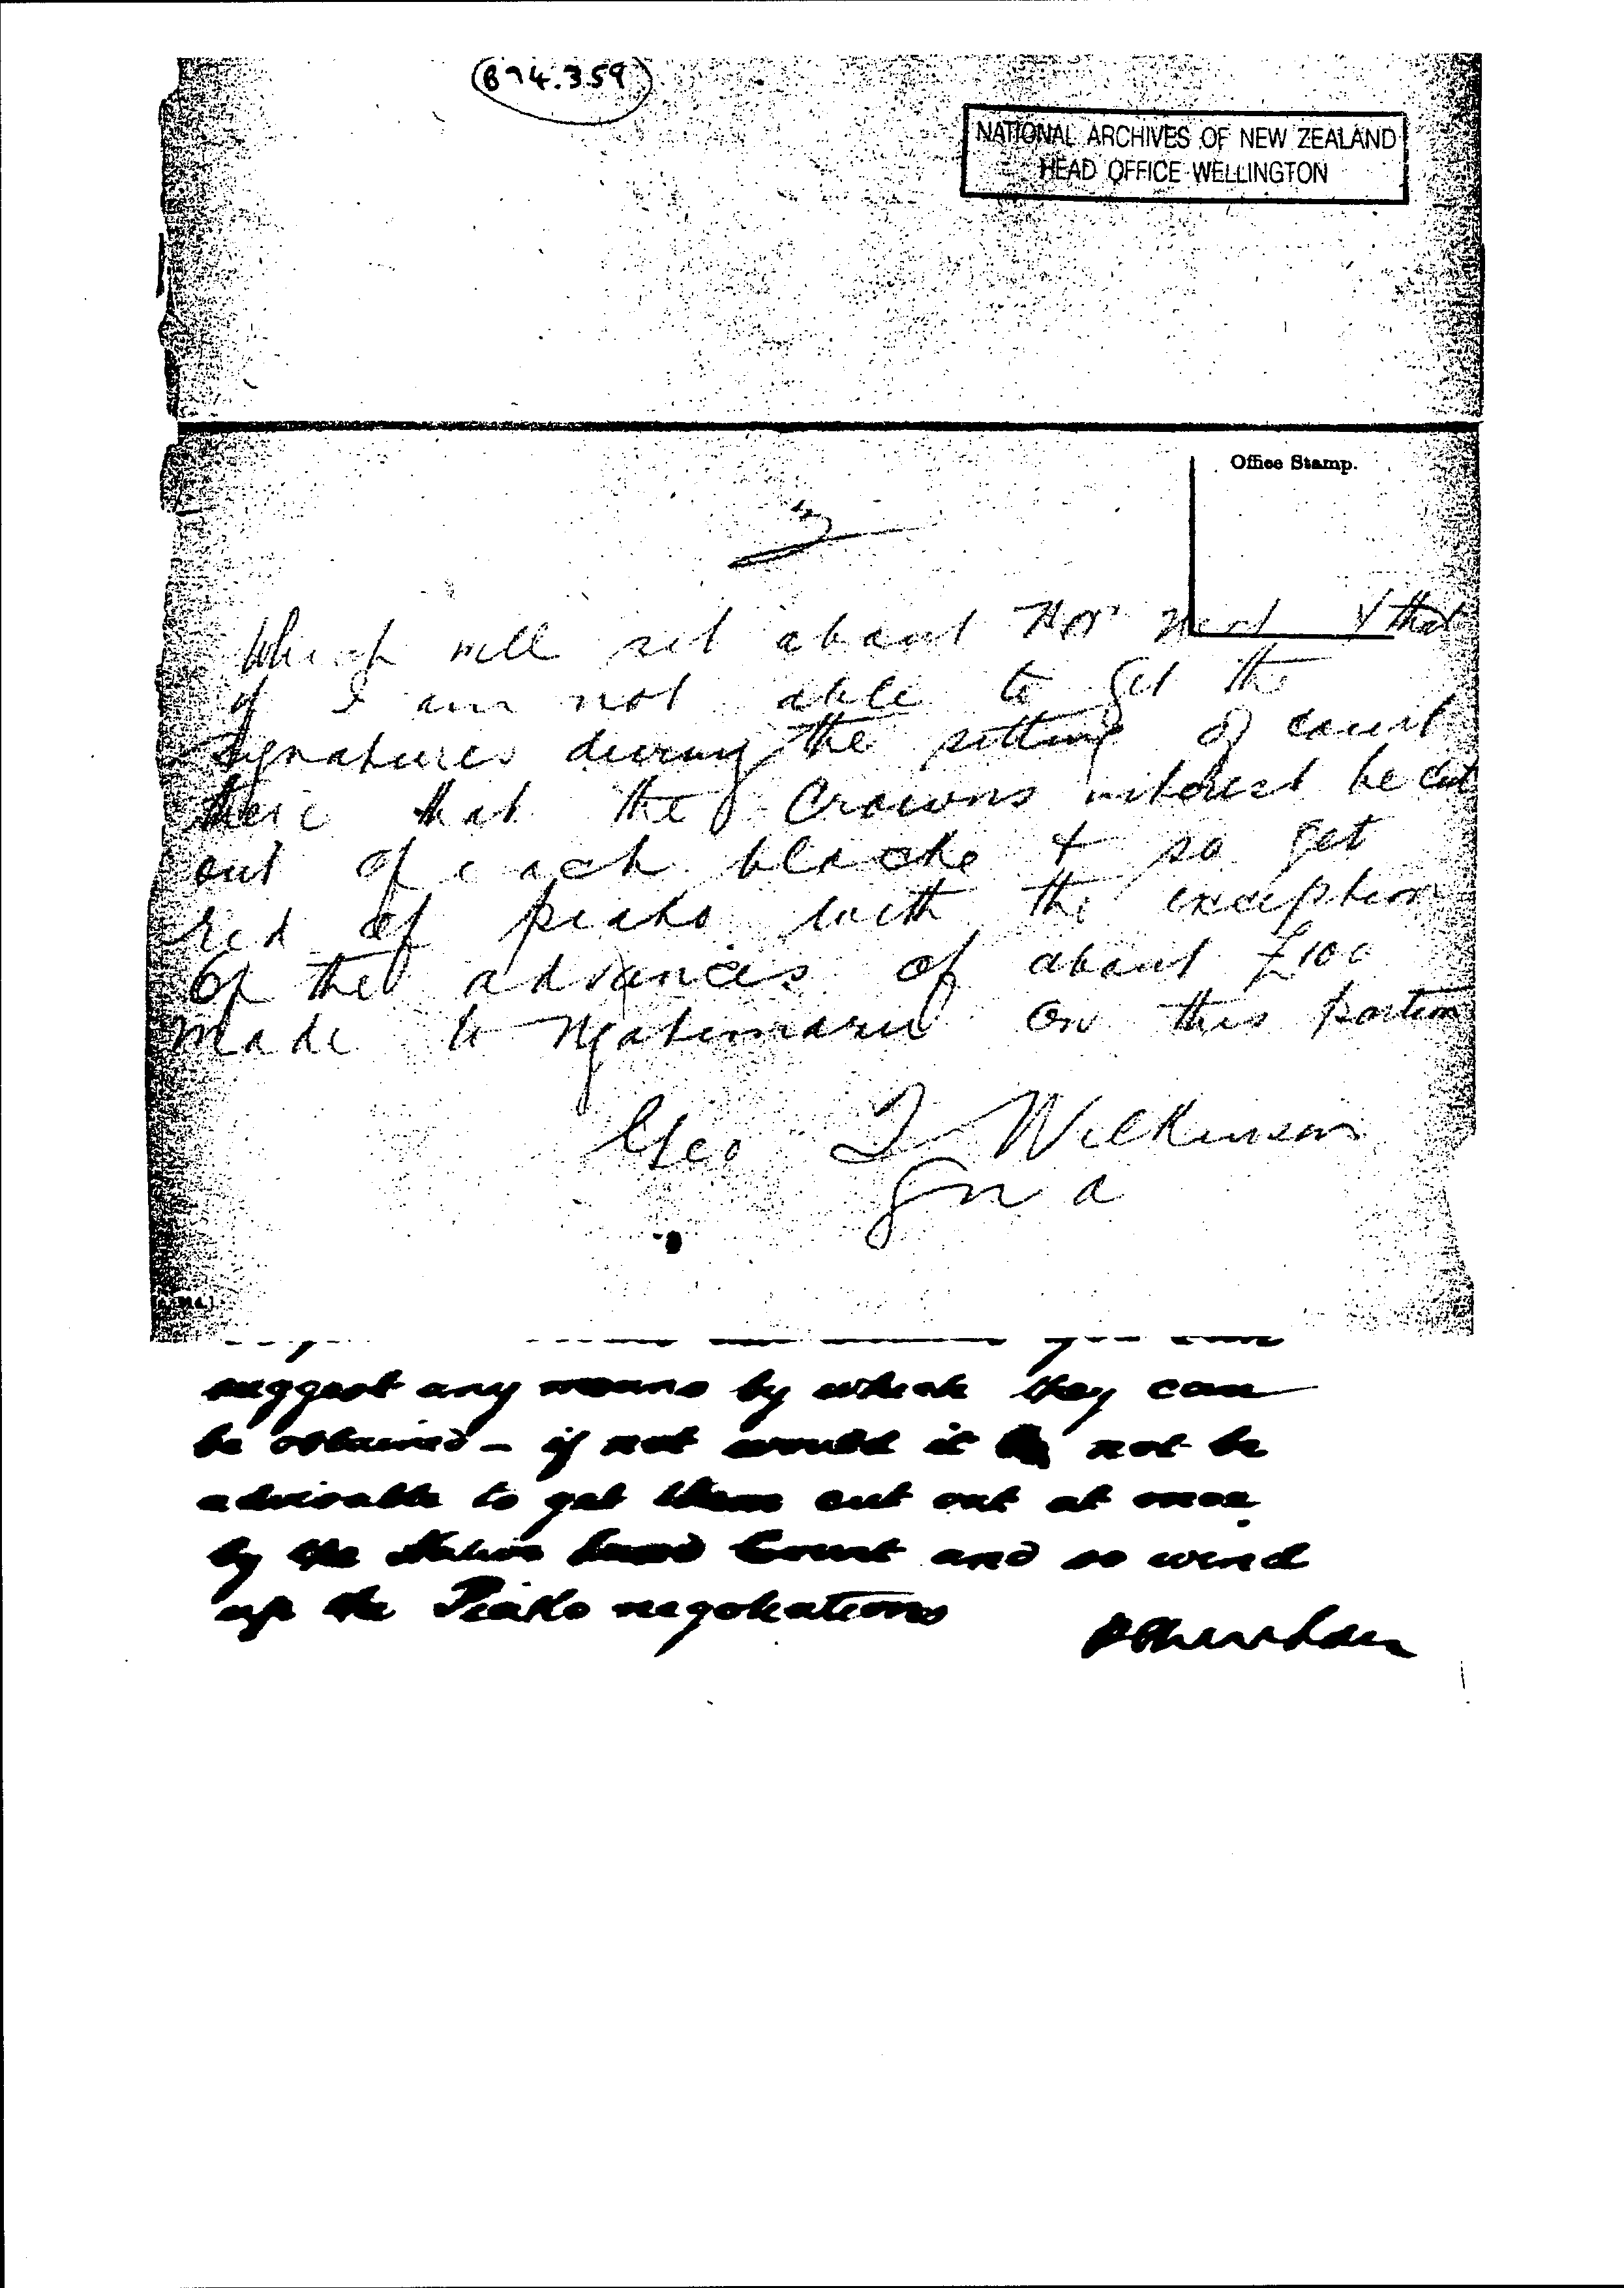 (B74.359)
NATIONAL ARCHIVES OF NEW ZEALAND
HEAD OFFICE WELLINGTON
Office Stamp.
3
Which will sit about & that
if I am not able to get the
signatures during the sitting of court
there that the Crowns interest be cut
out of each blocke & so get
rid of piako with the exception
Of the advances of about £100
made to on this portion
Geo T Wilkinson
G n a
suggest any means by which they can
be obtained - if not would it not be
advisable to get them cut out at once
by the Native Land Court and so wind
up the Piako negotiations